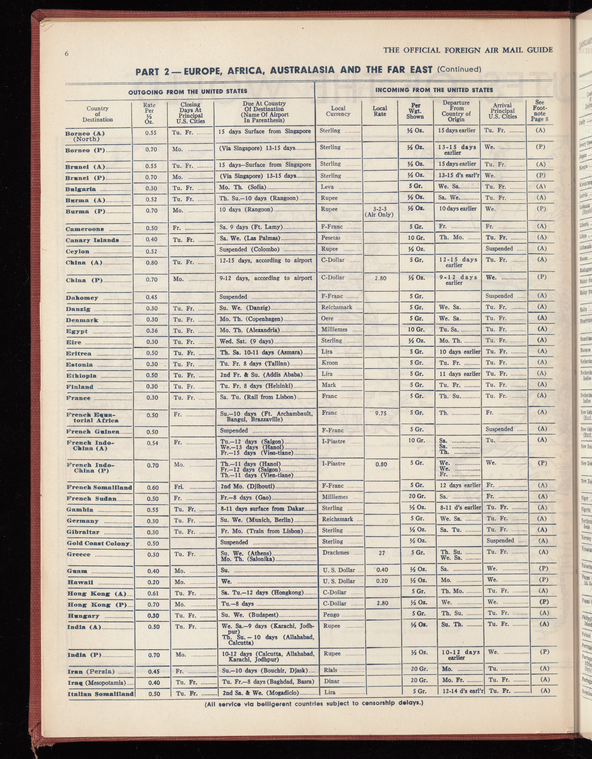 6
THE OFFICIAL FOREIGN AIR MAIL GUIDE
PART 2—EUROPE, AFRICA, AUSTRALASIA AND THE FAR EAST (Continued)
OUTGOING FROM THE UNITED STATES INCOMING FROM THE UNITED STATES
Country of Destination Rate Per ½ Oz. Closing Days At Principal U.S. Cities Due At Country Of Destination (Name Of Airport In Parenthesis) Local Currency Local Rate Per Wgt. Shown Departure From Country of Origin Arrival Principal U.S. Cities See Foot-note Page 8
Borneo (A) (North) 0.55 Tu. Fr. 15 days Surface from Singapore Sterling ½ Oz. 15 days earlier Tu. Fr. (A)
Borneo (P) 0.70 Mo. (Via Singapore) 13-15 days Sterling ½ Oz. 13-15 days earlier We. (P)
Brunei (A) 0.55 Tu. Fr. 15 days—Surface from Singapore Sterling ½ Oz. 15 days earlier Tu. Fr. (A)
Brunei (P) 0.70 Mo. (Via Singapore) 13-15 days Sterling ½ Oz. 13-15 d's earl'r We. (P)
Bulgaria 0.30 Tu. Fr. Mo. Th. (Sofia) Leva 5 Gr. We. Sa. Tu. Fr. (A)
Burma (A) 0.52 Tu. Fr. Th. Su.—10 days (Rangoon) Rupee ½ Oz. Sa. We. Tu. Fr. (A)
Burma (P) 0.70 Mo. 10 days (Rangoon) Rupee 3-2-3 (Air Only) ½ Oz. 10 days earlier We. (P)
Cameroons 0.50 Fr. Sa. 9 days (Ft. Lamy) F-Franc 5 Gr. Fr. Fr. (A)
Canary Islands 0.40 Tu. Fr. Sa. We. (Las Palmas) Pesetas 10 Gr. Th. Mo. Tu. Fr. (A)
Ceylon 0.52 Suspended (Colombo) Rupee ½ Oz. Suspended (A)
China (A) 0.80 Tu. Fr. 12-15 days, according to airport C-Dollar 5 Gr. 12-15 days earlier Tu. Fr. (A)
China (P) 0.70 Mo. 9-12 days, according to airport C-Dollar 2.80 ½ Oz. 9-12 days earlier We. (P)
Dahomey 0.45 Suspended F-Franc 5 Gr. Suspended (A)
Danzig 0.30 Tu. Fr. Su. We. (Danzig) Reichsmark 5 Gr. We. Sa. Tu. Fr. (A)
Denmark 0.30 Tu. Fr. Mo. Th. (Copenhagen) Oere 5 Gr. We. Sa. Tu. Fr. (A)
Egypt 0.56 Tu. Fr. Mo. Th. (Alexandria) Milliemes 10 Gr. Tu. Sa. Tu. Fr. (A)
Eire 0.30 Tu. Fr. Wed. Sat. (9 days) Sterling ½ Oz. Mo. Th. Tu. Fr. (A)
Eritrea 0.50 Tu. Fr. Th. Sa. 10-11 days (Asmara) Lira 5 Gr. 10 days earlier Tu. Fr. (A)
Estonia 0.30 Tu. Fr. Tu. Fr. 8 days (Tallinn) Kroon 5 Gr. Tu. Fr. Tu. Fr. (A)
Ethiopia 0.50 Tu. Fr. 2nd Fr. & Su. (Addis Ababa) Lira 5 Gr. 11 days earlier Tu. Fr. (A)
Finland 0.30 Tu. Fr. Tu. Fr. 8 days (Helsinki) Mark 5 Gr. Tu. Fr. Tu. Fr. (A)
France 0.30 Tu. Fr. Sa. Tu. (Rail from Lisbon) Franc 5 Gr. Th. Su. Tu. Fr. (A)
French Equatorial Africa 0.50 Fr. Su.—10 days (Ft. Archambault, Bangui, Brazzaville) Franc 9.75 5 Gr. Th. Fr. (A)
French Guinea 0.50 Suspended F-Franc 5 Gr. Suspended (A)
French Indo-China (A) 0.54 Fr. Tu.—12 days (Saigon) We.—13 days (Hanoi) Fr.—15 days (Vien-tiane) I-Piastre 10 Gr. Sa. Sa. Th. Tu. (A)
French Indo-China (P) 0.70 Mo. Th.—11 days (Hanoi) Fr.—12 days (Saigon) Th.—11 days (Vien-tiane) I-Piastre 0.80 5 Gr. We. We. Fr. We. (P)
French Somaliland 0.60 Fri. 2nd Mo. (Djibouti) F-Franc 5 Gr. 12 days earlier Fr. (A)
French Sudan 0.50 Fr. Fr.—8 days (Gao) Milliemes 20 Gr. Sa. Fr. (A)
Gambia 0.55 Tu. Fr. 8-11 days surface from Dakar Sterling ½ Oz. 8-11 d's earlier Tu. Fr. (A)
Germany 0.30 Tu. Fr. Su. We. (Munich, Berlin) Reichsmark 5 Gr. We. Sa. Tu. Fr. (A)
Gibraltar 0.30 Tu. Fr. Fr. Mo. (Train from Lisbon) Sterling ½ Oz. Sa. Tu. Tu. Fr. (A)
Gold Coast Colony 0.50 Suspended Sterling ½ Oz. Suspended (A)
Greece 0.30 Tu. Fr. Su. We. (Athens) Mo. Th. (Salonika) Drachmes 27 5 Gr. Th. Su. We. Sa. Tu. Fr. (A)
Guam 0.40 Mo. Su. U. S. Dollar 0.40 ½ Oz. Sa. We. (P)
Hawaii 0.20 Mo. We. U. S. Dollar 0.20 ½ Oz. Mo. We. (P)
Hong Kong (A) 0.61 Tu. Fr. Sa. Tu.—12 days (Hongkong) C-Dollar 5 Gr. Th. Mo. Tu. Fr. (A)
Hong Kong (P) 0.70 Mo. Tu.—8 days C-Dollar 2.80 ½ Oz. We. We. (P)
Hungary 0.30 Tu. Fr. Su. We. (Budapest) Pengo 5 Gr. Th. Su. Tu. Fr. (A)
India (A) 0.50 Tu. Fr. We. Sa.—9 days (Karachi, Jodhpur) Th. Su.—10 days (Allahabad, Calcutta) Rupee ½ Oz. Su. Th. Tu. Fr. (A)
India (P) 0.70 Mo. 10-12 days (Calcutta, Allahabad, Karachi, Jodhpur) Rupee ½ Oz. 10-12 days earlier We. (P)
Iran (Persia) 0.45 Fr. Su.—10 days (Bouchir, Djask) Rials 20 Gr. Mo. Tu. (A)
Iraq (Mesopotamia) 0.40 Tu. Fr. Tu. Fr.—8 days (Baghdad, Basra) Dinar 20 Gr. Mo. Fr. Tu. Fr. (A)
Italian Somaliland 0.50 Tu. Fr. 2nd Sa. & We. (Mogadicio) Lira 5 Gr. 12-14 d's earl'r Tu. Fr. (A)
(All service via belligerent countries subject to censorship delays.)